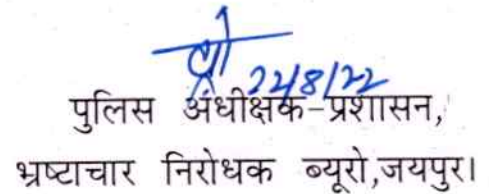 22/8/22
पुलिस अधीक्षक-प्रशासन,
भ्रष्टाचार निरोधक ब्यूरो,जयपुर।